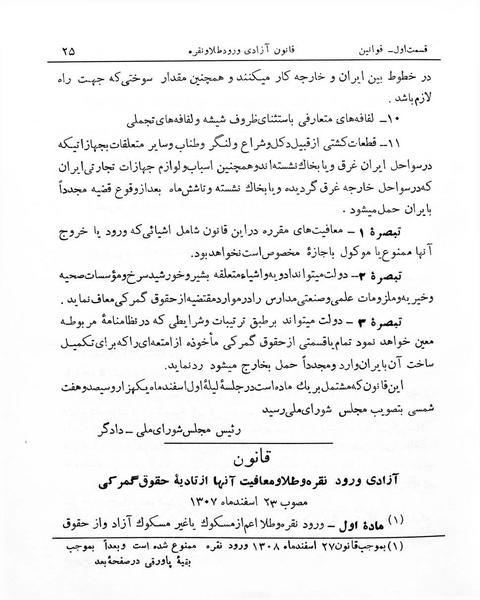 قسمت اول ــ قوانین
قانون آزادی ورود طلا و نقره
۲۵
در خطوط بین ایران و خارجه کار میکنند و همچنین مقدار سوختی که جهت راه
لازم باشد .
۱۰ــ لفافه‌های متعارفی باستثنای ظروف شیشه و لفافه‌های تجملی
۱۱ــ قطعات کشتی از قبیل دکل و شراع و لنگر و طناب و سایر متعلقات بجهازاتیکه
در سواحل ایران غرق و یا بخاك نشسته اند و همچنین اسباب و لوازم جهازات تجارتی ایران
که در سواحل خارجه غرق گردیده و یا بخاك نشسته و تا شش ماه بعد از وقوع قضیه مجدداً
بایران حمل میشود .
تبصرهٔ ۱ ــ معافیت‌های مقرره در این قانون شامل اشیائی که ورود یا خروج
آنها ممنوع یا موکول باجازهٔ مخصوص است نخواهد بود.
تبصرهٔ ۲ــ دولت میتواند ادویه و اشیاء متعلقه بشیر و خورشید سرخ و مؤسسات صحیه
و خیریه و ملزومات علمی و صنعتی مدارس را در موارد مقتضیه از حقوق گمرکی معاف نماید .
تبصرهٔ ۳ ــ دولت میتواند بر طبق ترتیبات و شرایطی که در نظامنامهٔ مربوطه
معین خواهد نمود تمام یا قسمتی از حقوق گمرکی مأخوذه از امتعه‌ای را که برای تکمیل
ساخت آن بایران وارد و مجدداً حمل بخارج میشود رد نماید.
این قانون که مشتمل بر یك ماده است در جلسهٔ لیلهٔ اول اسفند ماه یکهزار و سیصد و هفت
شمسی بتصویب مجلس شورای ملی رسید
رئیس مجلس شورای ملی ــ دادگر
قانون
آزادی ورود نقره و طلا و معافیت آنها از تادیهٔ حقوق گمرکی
مصوب ۲۳ اسفند ماه ۱۳۰۷
(۱) مادهٔ اول ــ ورود نقره و طلا اعم از مسکوك یا غیر مسکوك آزاد و از حقوق
(۱) بموجب قانون ۲۷ اسفند ماه ۱۳۰۸ ورود نقره ممنوع شده است و بعداً بموجب
بقیهٔ پاورقی در صفحهٔ بعد